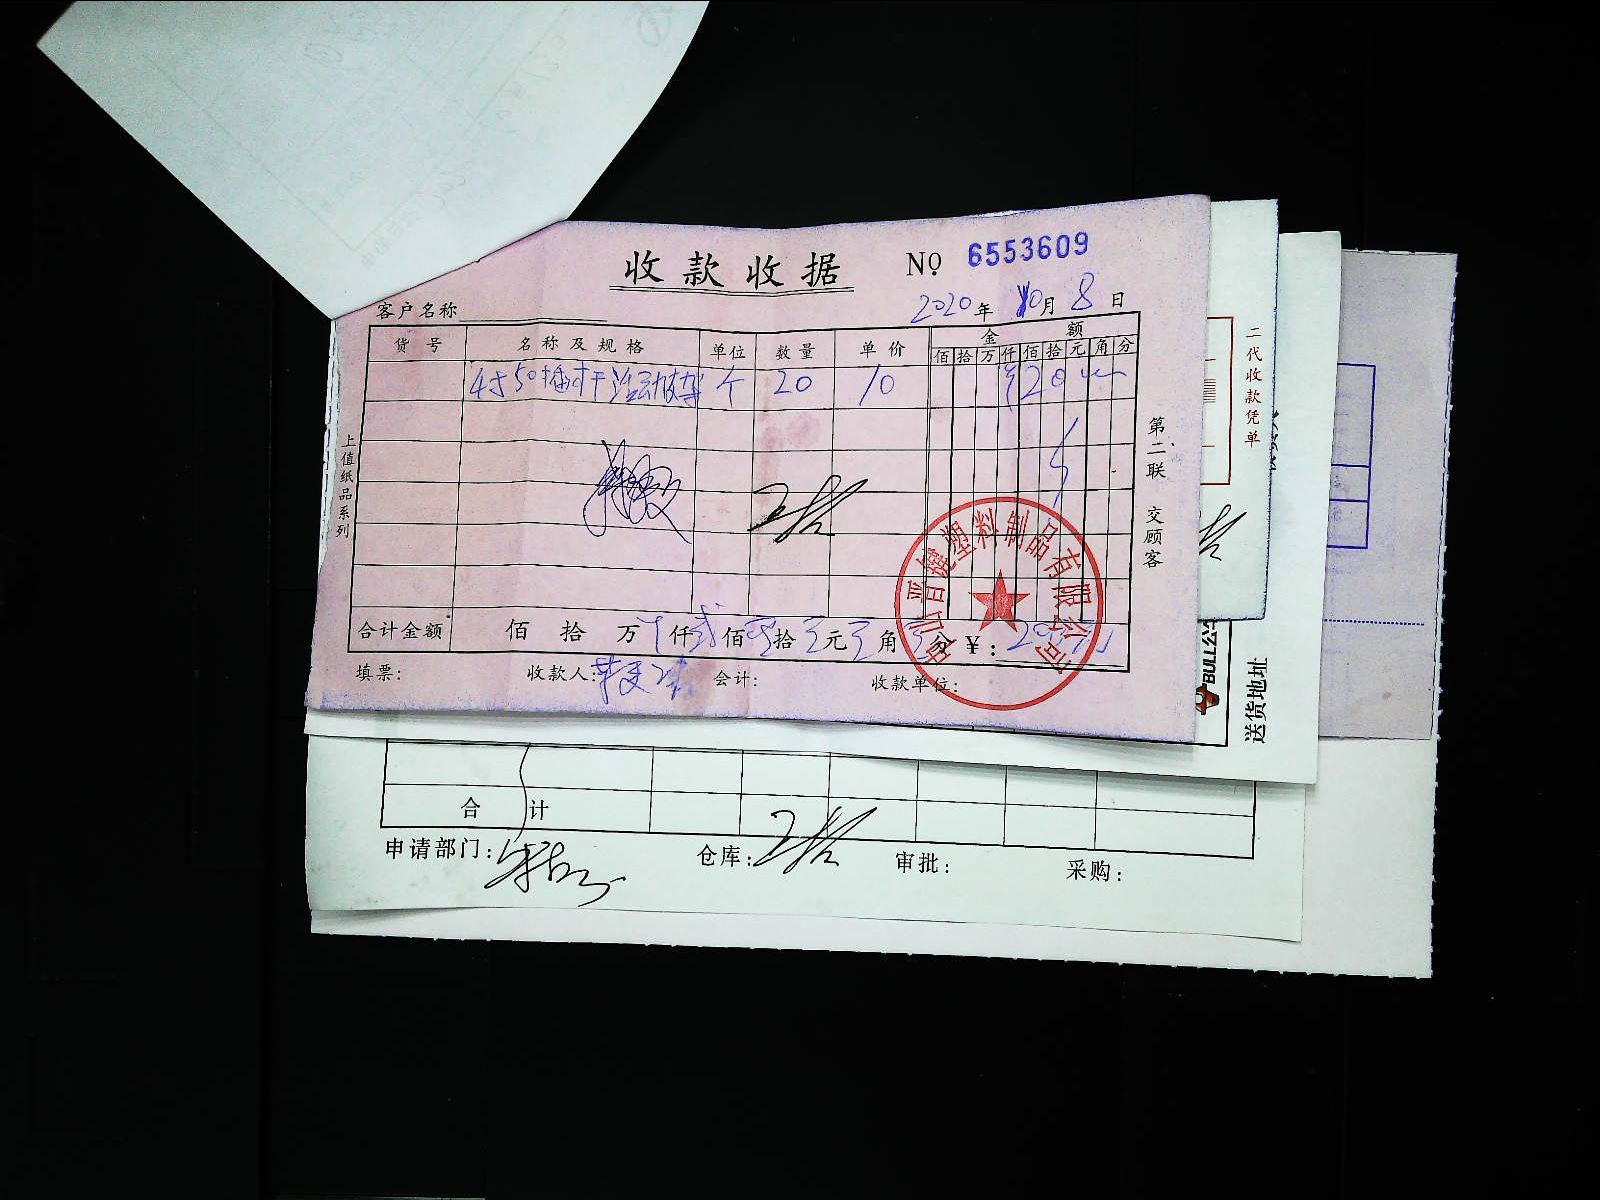 收款收据 No 6553609
客户名称
2020年10月8日
货号 名称及规格 单位 数量 单价 金额
佰 拾 万 仟 佰 拾 元 角 分
4寸50插杆活动板 个 20 10 ¥200
上值纸品系列
第二联 交顾客
塑料制品有限公司
合计金额 佰 拾 万 仟 贰 佰 零 拾 零 元 零 角 零 分 ¥: 200
填票: 收款人: 会计: 收款单位:
二代收款凭单
BULL公牛
送货地址
合计
申请部门: 仓库: 审批: 采购: